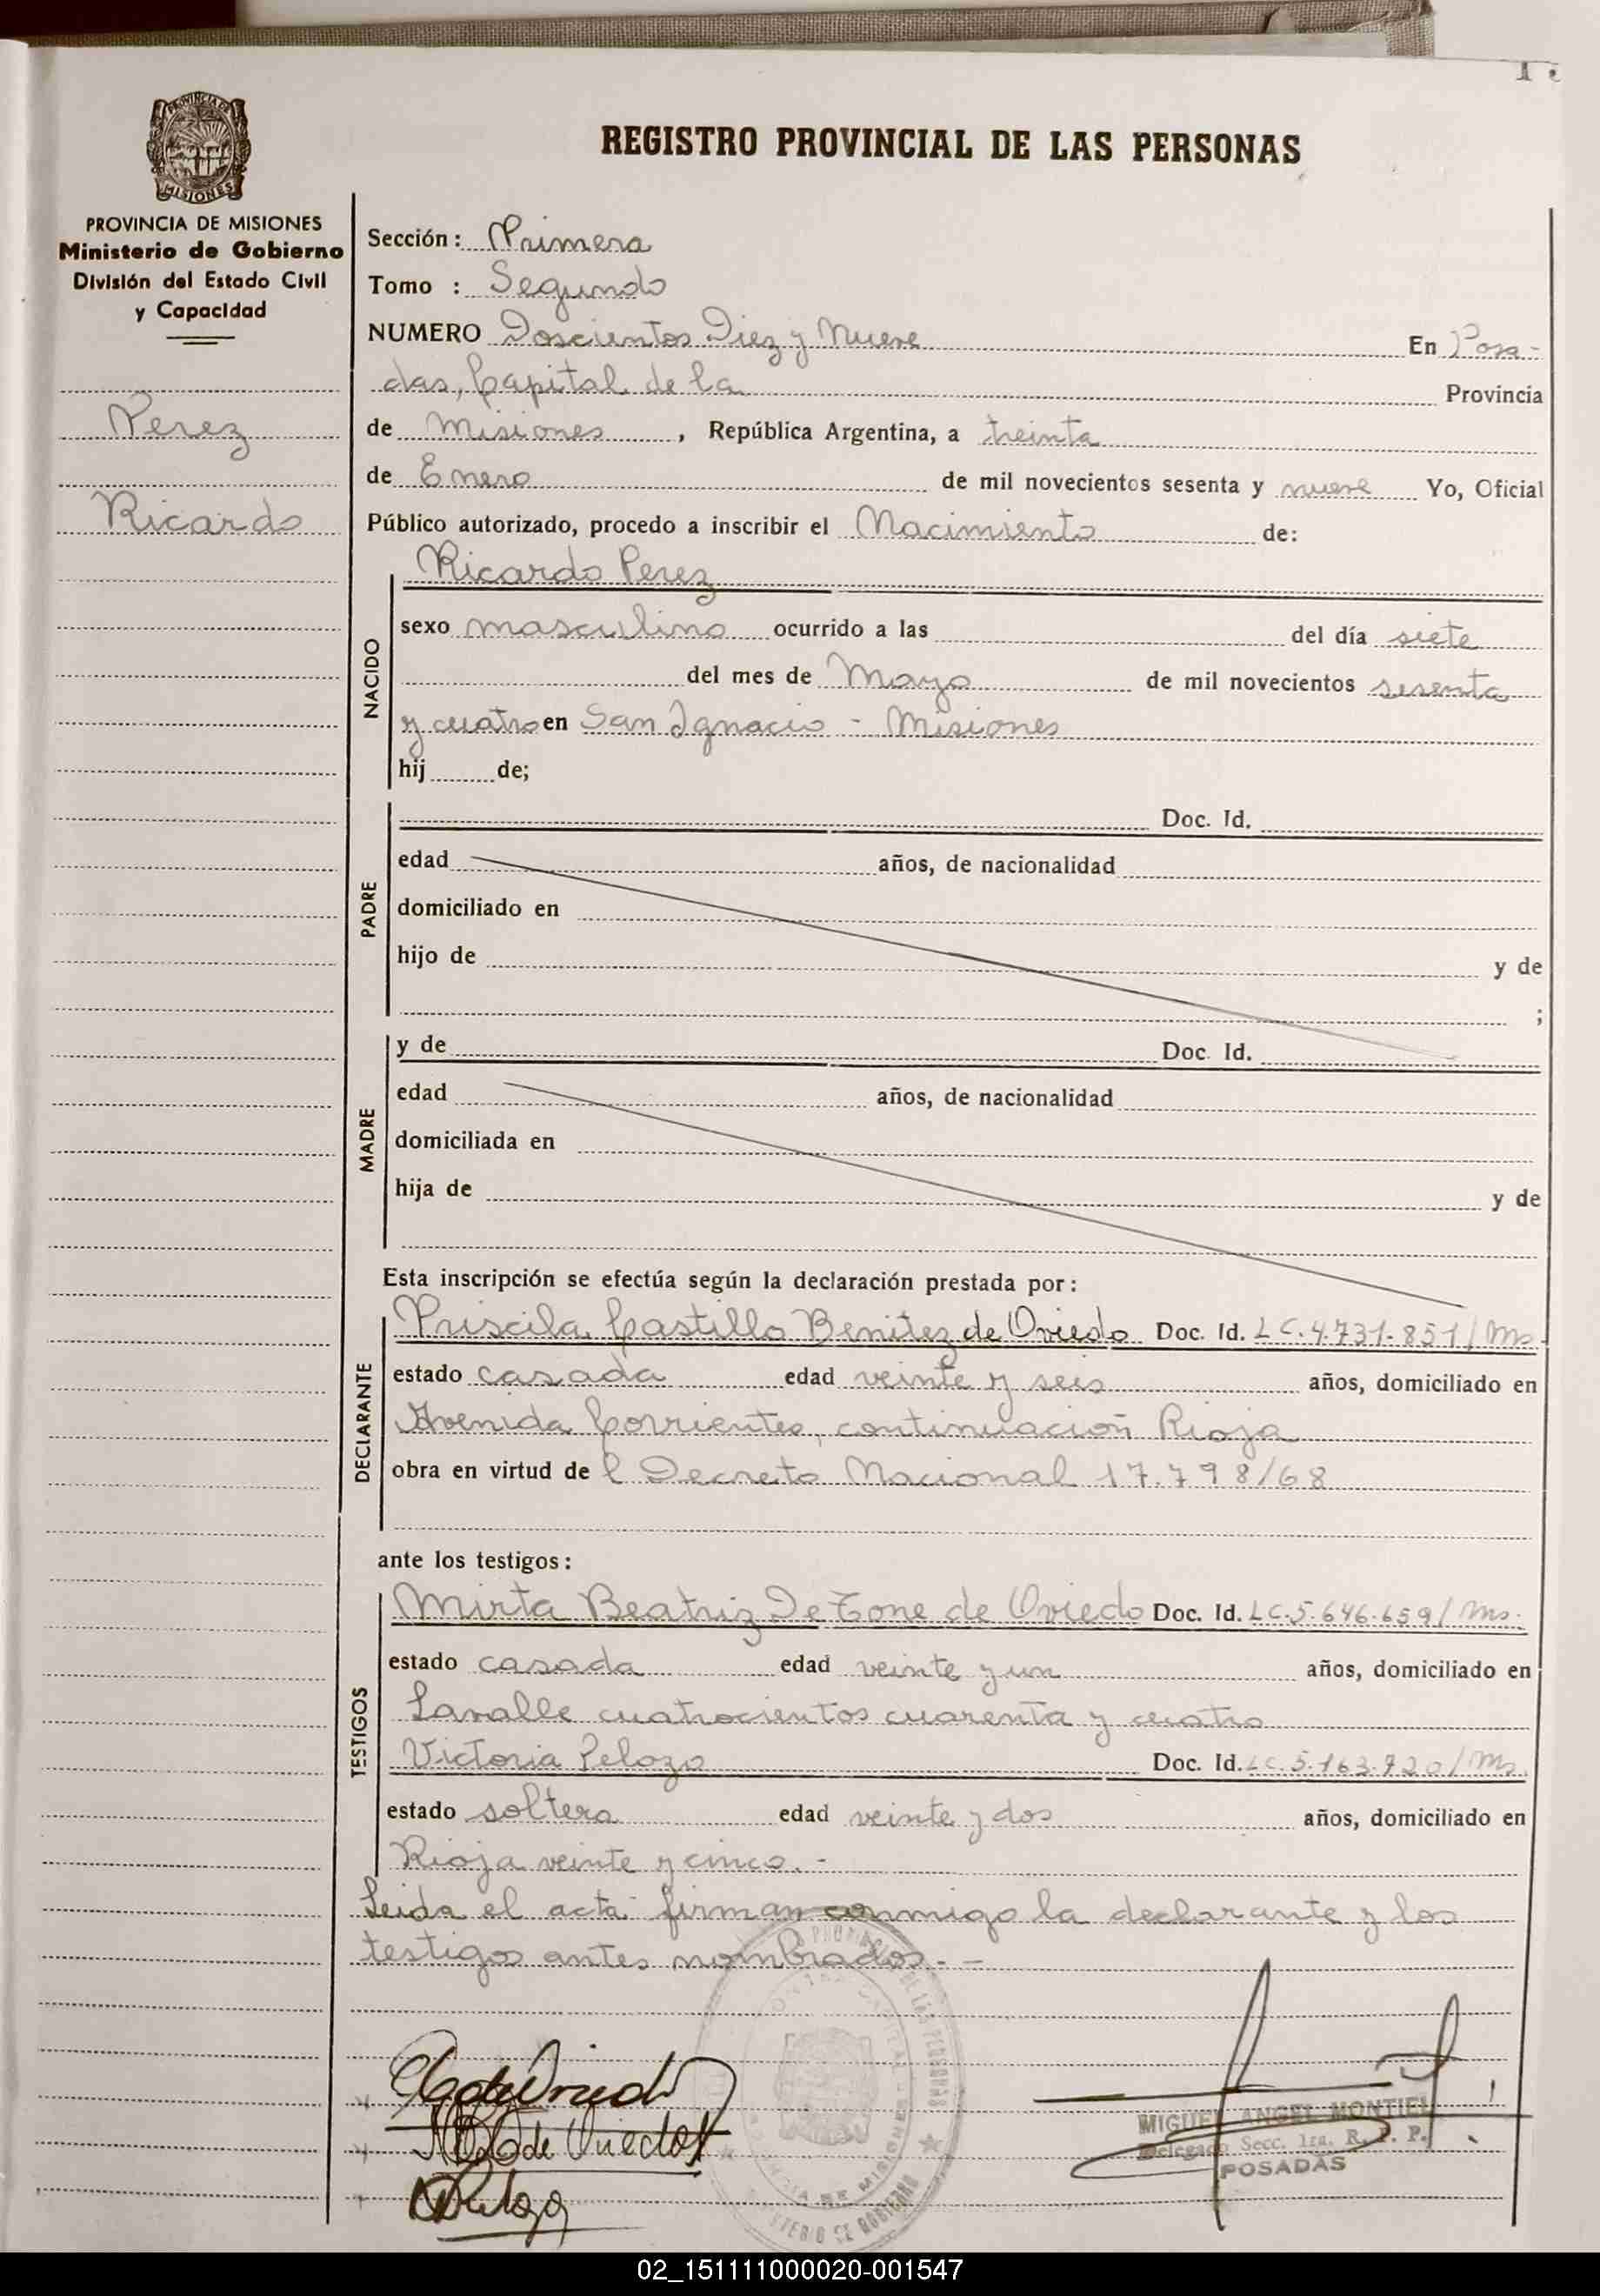 REGISTRO PROVINCIAL DE LAS PERSONAS
PROVINCIA DE MISIONES
Ministerio de Gobierno
División del Estado Civil
y Capacidad
Perez
Ricardo
Sección: Primera
Tomo : Segundo
NUMERO Doscientos Diez y Nueve En Posa-
das, Capital de la Provincia
de Misiones, República Argentina, a treinta
de Enero de mil novecientos sesenta y nueve Yo, Oficial
Público autorizado, procedo a inscribir el Nacimiento de:
NACIDO
Ricardo Perez
sexo masculino ocurrido a las del día siete
del mes de Mayo de mil novecientos sesenta
y cuatro en San Ignacio - Misiones
hij de;
PADRE
Doc. Id.
edad años, de nacionalidad
domiciliado en
hijo de y de
;
MADRE
y de Doc. Id.
edad años, de nacionalidad
domiciliada en
hija de y de
Esta inscripción se efectúa según la declaración prestada por:
DECLARANTE
Priscila Castillo Benitez de Oviedo Doc. Id. LC.4.731.851/Ms.
estado casada edad veinte y seis años, domiciliado en
Avenida Corrientes, continuación Rioja
obra en virtud de l Decreto Nacional 17.798/68
ante los testigos:
TESTIGOS
Mirta Beatriz De Tone de Oviedo Doc. Id. LC.5.646.659/Ms.
estado casada edad veinte y un años, domiciliado en
Lavalle cuatrocientos cuarenta y cuatro
Victoria Pelozo Doc. Id. LC.5.163.920/Ms.
estado soltera edad veinte y dos años, domiciliado en
Rioja veinte y cinco.-
Leida el acta firman conmigo la declarante y los
testigos antes nombrados.-
MIGUEL ANGEL MONTIEL
Delegado Secc. 1ra. R. P. P.
POSADAS
02_151111000020-001547